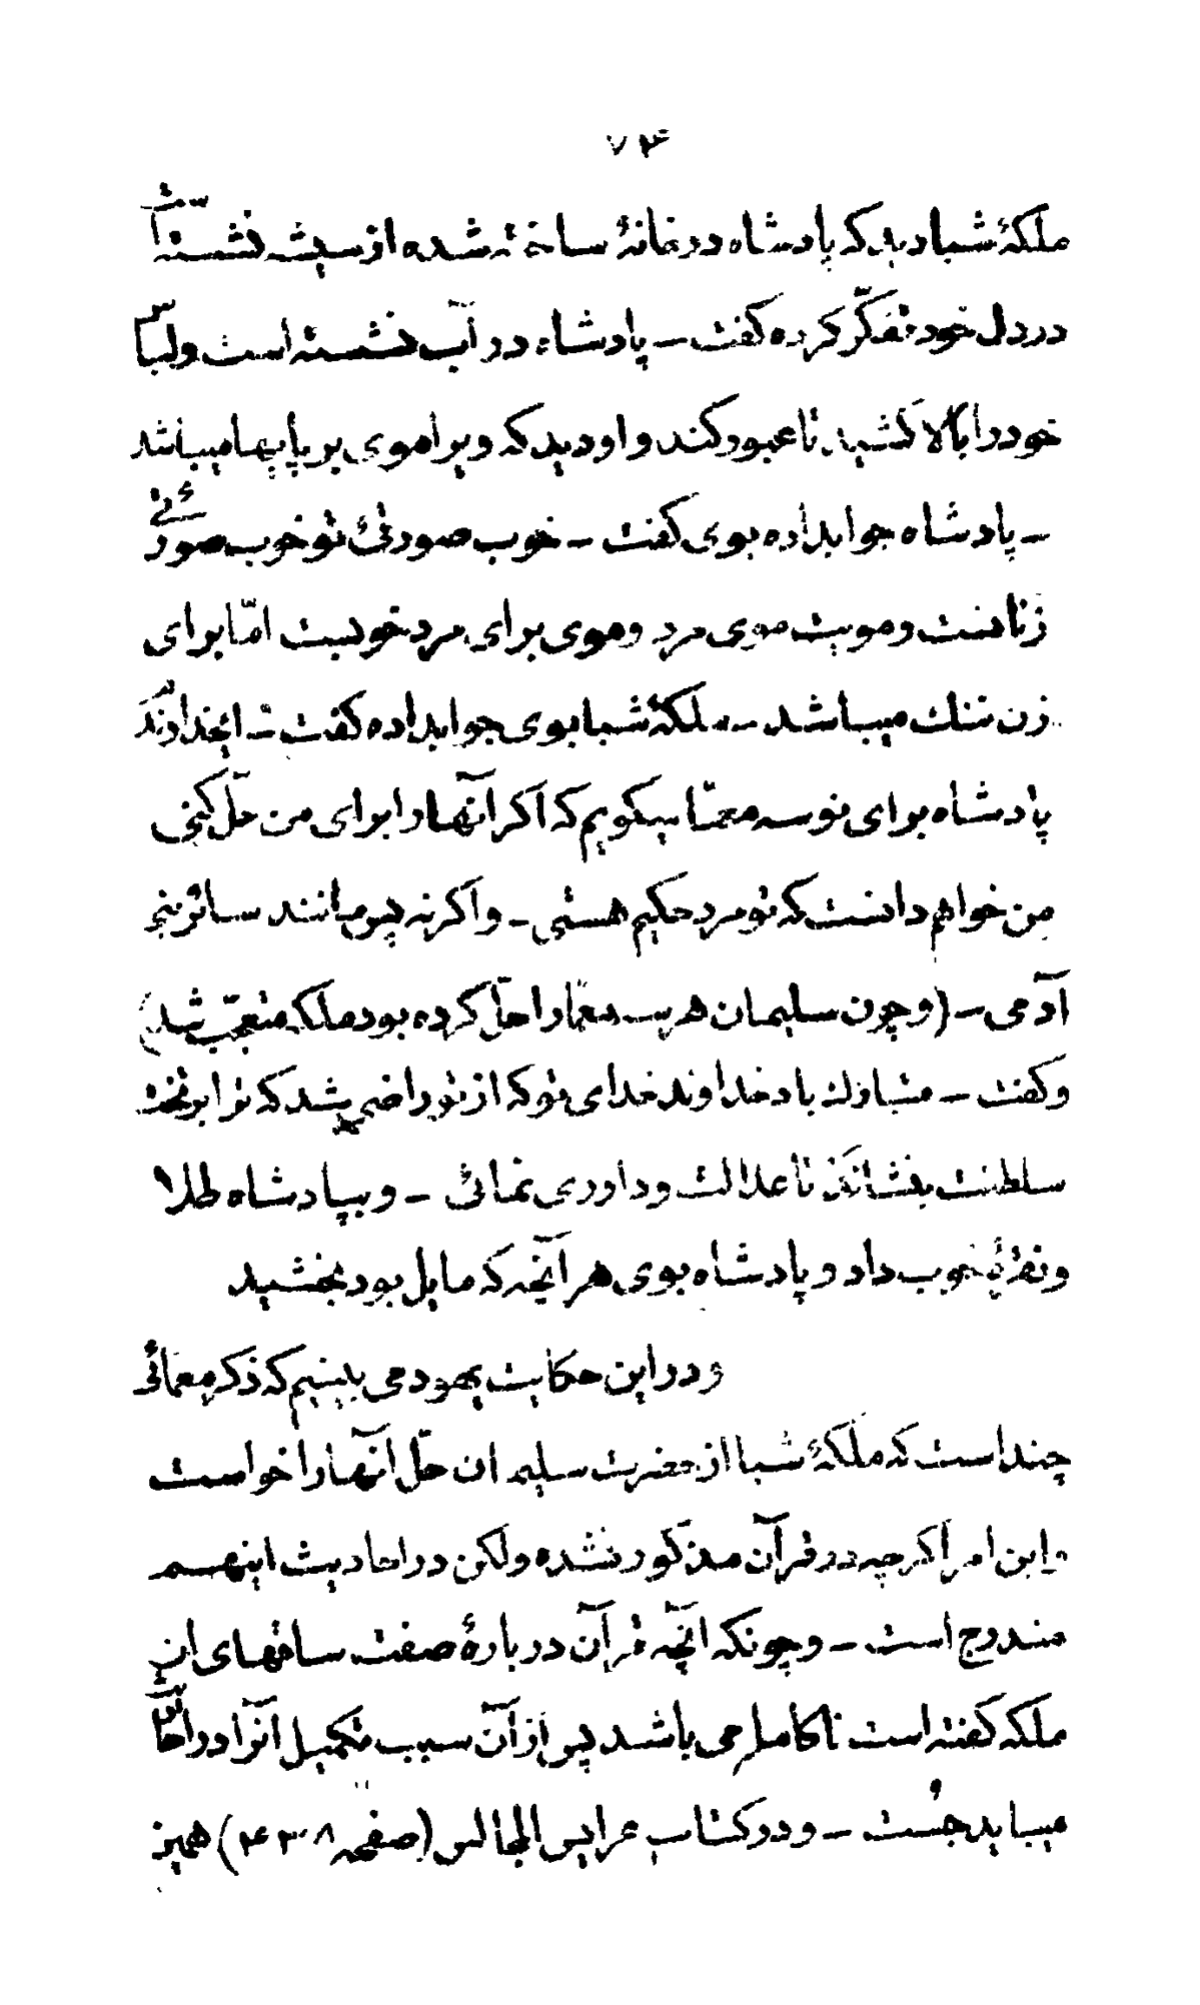 ۷۴
ملکهٔ شبا دید که پادشاه در خانهٔ ساخته شده از شیشه نشسته است
در دل خود تفکّر کرده گفت – پادشاه در آب نشسته است و لباس
خود را بالا کشید تا عبور کند و او دید که ویرا موی بر پایها میباشد
– پادشاه جوابداده بوی گفت – خوب صورتئ تو خوب صورتئ
زنانست و مویت موی مرد و موی برای مرد خوبست امّا برای
زن ننگ میباشد – ملکهٔ شبا بوی جوابداده گفت – ایخداوند
پادشاه برای تو سه معمّا میگویم که اگر آنها را برای من حلّ کنی
من خواهم دانست که تو مرد حکیم هستی – و اگر نه پس مانند سائر بنی
آدمی – (و چون سلیمان هر سه معمّا را حلّ کرده بود ملکه متعجّب شد)
و گفت – متبارک باد خداوند خدای تو که از تو راضی شد که ترا بر تخت
سلطنت بنشاند تا عدالت و داوری نمائی – و بپادشاه طلا
و نقرهٔ خوب داد و پادشاه بوی هر آنچه که مایل بود بخشید
و در این حکایت یهود می بینیم که ذکر معمّائی
چند است که ملکهٔ شبا از حضرت سلیمان حلّ آنها را خواست
و این امر اگرچه در قرآن مذکور نشده ولکن در احادیث اینهم
مندرج است – و چونکه آنچه قرآن در بارهٔ صفت ساقهای آن
ملکه گفته است ناکامل می باشد پس از آن سبب تکمیل آنرا در احادیث
میباید جُست – و در کتاب عرایس المجالس (صفحه ۴۳۸) همین